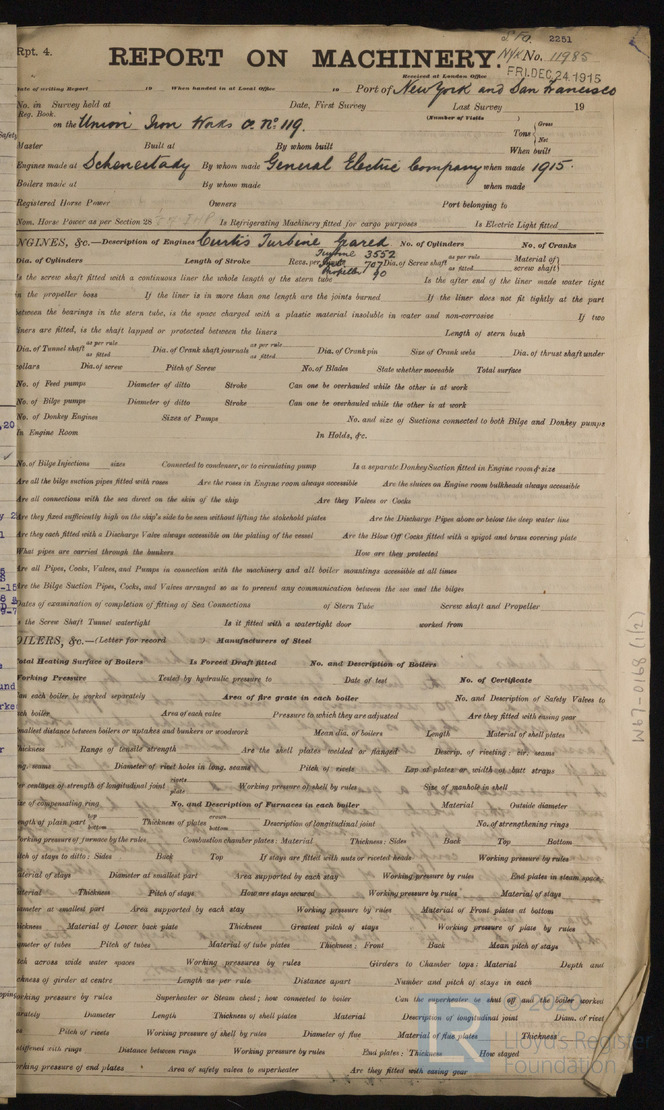 S.F.O. 2251
Rpt. 4. REPORT ON MACHINERY. N.Y.K No. 11985
Received at London Office FRI. DEC. 24. 1915
Date of writing Report 19 When handed in at Local Office 19 Port of New York and San Francisco
No. in Survey held at Date, First Survey Last Survey 19
Reg. Book. (Number of Visits
on the Union Iron Works O. No. 119. Tons { Gross Net
Master Built at By whom built When built
Engines made at Schenectady By whom made General Electric Company when made 1915.
Boilers made at By whom made when made
Registered Horse Power Owners Port belonging to
Nom. Horse Power as per Section 28 Is Refrigerating Machinery fitted for cargo purposes Is Electric Light fitted
NGINES, &c.—Description of Engines Curtis Turbine Geared No. of Cylinders No. of Cranks
Dia. of Cylinders Length of Stroke Revs. per Turbine 3552 707 Propeller 90 Dia. of Screw shaft as per rule as fitted Material of screw shaft
Is the screw shaft fitted with a continuous liner the whole length of the stern tube Is the after end of the liner made water tight
in the propeller boss If the liner is in more than one length are the joints burned If the liner does not fit tightly at the part
between the bearings in the stern tube, is the space charged with a plastic material insoluble in water and non-corrosive If two
liners are fitted, is the shaft lapped or protected between the liners Length of stern bush
Dia. of Tunnel shaft as per rule as fitted Dia. of Crank shaft journals as per rule as fitted Dia. of Crank pin Size of Crank webs Dia. of thrust shaft under
collars Dia. of screw Pitch of Screw No. of Blades State whether moveable Total surface
No. of Feed pumps Diameter of ditto Stroke Can one be overhauled while the other is at work
No. of Bilge pumps Diameter of ditto Stroke Can one be overhauled while the other is at work
No. of Donkey Engines Sizes of Pumps No. and size of Suctions connected to both Bilge and Donkey pumps
In Engine Room In Holds, &c.
No. of Bilge Injections sizes Connected to condenser, or to circulating pump Is a separate Donkey Suction fitted in Engine room & size
Are all the bilge suction pipes fitted with roses Are the roses in Engine room always accessible Are the sluices on Engine room bulkheads always accessible
Are all connections with the sea direct on the skin of the ship Are they Valves or Cocks
Are they fixed sufficiently high on the ship's side to be seen without lifting the stokehold plates Are the Discharge Pipes above or below the deep water line
Are they each fitted with a Discharge Valve always accessible on the plating of the vessel Are the Blow Off Cocks fitted with a spigot and brass covering plate
What pipes are carried through the bunkers How are they protected
Are all Pipes, Cocks, Valves, and Pumps in connection with the machinery and all boiler mountings accessible at all times
Are the Bilge Suction Pipes, Cocks, and Valves arranged so as to prevent any communication between the sea and the bilges
Dates of examination of completion of fitting of Sea Connections of Stern Tube Screw shaft and Propeller
Is the Screw Shaft Tunnel watertight Is it fitted with a watertight door worked from
OILERS, &c.—(Letter for record ) Manufacturers of Steel
Total Heating Surface of Boilers Is Forced Draft fitted No. and Description of Boilers
Working Pressure Tested by hydraulic pressure to Date of test No. of Certificate
Can each boiler be worked separately Area of fire grate in each boiler No. and Description of Safety Valves to
each boiler Area of each valve Pressure to which they are adjusted Are they fitted with easing gear
Smallest distance between boilers or uptakes and bunkers or woodwork Mean dia. of boilers Length Material of shell plates
Thickness Range of tensile strength Are the shell plates welded or flanged Descrip. of riveting: cir. seams
long. seams Diameter of rivet holes in long. seams Pitch of rivets Lap of plates or width of butt straps
Per centages of strength of longitudinal joint rivets plate Working pressure of shell by rules Size of manhole in shell
Size of compensating ring No. and Description of Furnaces in each boiler Material Outside diameter
Length of plain part top bottom Thickness of plates crown bottom Description of longitudinal joint No. of strengthening rings
Working pressure of furnace by the rules Combustion chamber plates: Material Thickness: Sides Back Top Bottom
Pitch of stays to ditto: Sides Back Top If stays are fitted with nuts or riveted heads Working pressure by rules
Material of stays Diameter at smallest part Area supported by each stay Working pressure by rules End plates in steam space,
Material Thickness Pitch of stays How are stays secured Working pressure by rules Material of stays
Diameter at smallest part Area supported by each stay Working pressure by rules Material of Front plates at bottom
Thickness Material of Lower back plate Thickness Greatest pitch of stays Working pressure of plate by rules
Diameter of tubes Pitch of tubes Material of tube plates Thickness: Front Back Mean pitch of stays
Pitch across wide water spaces Working pressures by rules Girders to Chamber tops: Material Depth and
thickness of girder at centre Length as per rule Distance apart Number and pitch of stays in each
Working pressure by rules Superheater or Steam chest; how connected to boiler Can the superheater be shut off and the boiler worked
separately Diameter Length Thickness of shell plates Material Description of longitudinal joint Diam. of rivet
Pitch of rivets Working pressure of shell by rules Diameter of flue Material of flue plates Thickness
stiffened with rings Distance between rings Working pressure by rules End plates: Thickness How stayed
Working pressure of end plates Area of safety valves to superheater Are they fitted with easing gear
W67-0168 (1/2)
© 2020
Lloyd's Register
Foundation